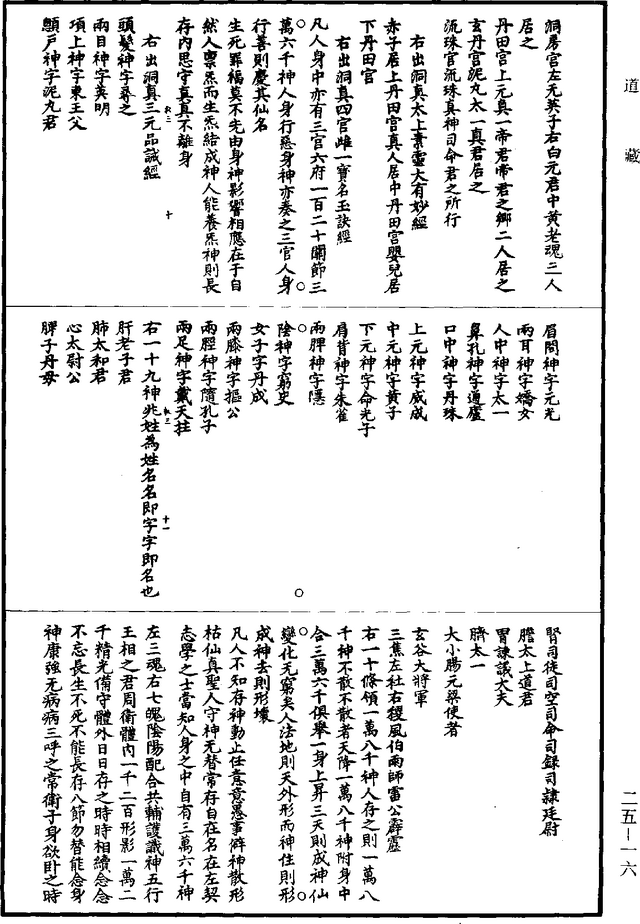 道藏
洞房宫左无英子右白元君中黄老魂三人
居之
丹田宫上元真一帝君帝君之鄉二人居之
玄丹宫泥丸太一真君居之
流珠宫流珠真神司命君之所行
右出洞真太上素靈大有妙經
赤子居上丹田宫真人居中丹田宫嬰兒居
下丹田宫
右出洞真四宫雌一寶名玉訣經
凡人身中亦有三宫六府一百二十關節三
萬六千神人身行惡身神亦奏之三官人身
行善則慶其仙名
生死罪福莫不先由身神影響相應在于自
然人禀炁而生炁結成神人能養炁神則長
存内思守真真不離身
右出洞真三元品誡經
頭髮神字尋之
兩目神字英明
項上神字東王父
顖戶神字泥丸君
十
眉間神字元光
兩耳神字嬌女
人中神字太一
鼻孔神字通廬
口中神字丹珠
上元神字威成
中元神字黄子
下元神字命光子
肩背神字朱雀
兩髀神字隱
陰神字窮史
女子字丹成
兩膝神字摳公
兩脛神字隨孔子
兩足神字戴天拄
右一十九神兆姓為姓名名即字字即名也
肝老子君
肺太和君
心太尉公
脾子丹母
十一
腎司徒司空司命司録司隷廷尉
膽太上道君
胃諫議大夫
臍太一
大小腸元梁使者
玄谷大將軍
三焦左社右稷風伯雨師雷公霹靂
右一十條領一萬八千神人存之則一萬八
千神不散不散者天降一萬八千神附身中
合三萬六千俱舉一身上昇三天則成神仙
變化无窮矣人法地則天外形而神住則形
成神去則形壞
凡人不知存神動止任意意惡事僻神散形
枯仙真聖人守神无替常存自在名在左契
志學之士當知人身之中自有三萬六千神
左三魂右七魄陰陽配合共輔護識神五行
王相之君周衛體内一千二百形影一萬二
千精光備守體外日日存之時時相續念念
不忘長生不死不能長存八節勿替能念身
神康強无病病三呼之常衛子身欲卧之時
二五—一六